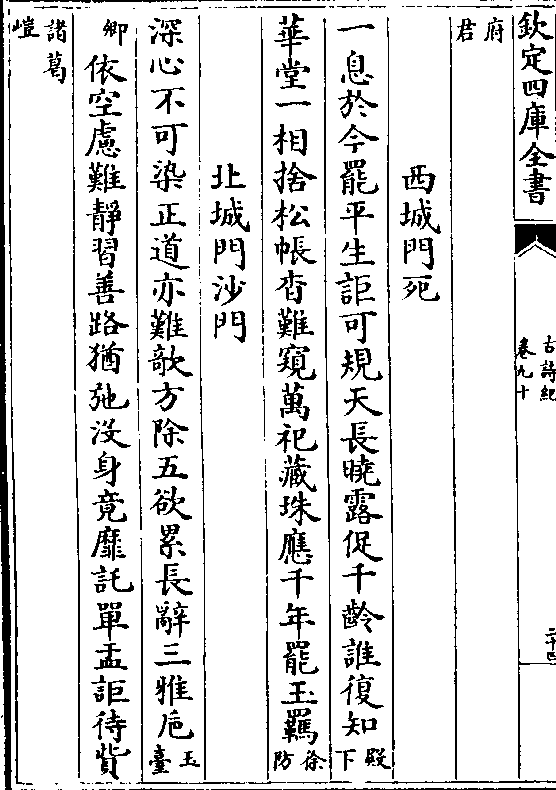 欽定四庫全書
古詩紀
卷九十
二十四
府君
西城門死
一息於今罷平生詎可規天長曉露促千齡誰復知殿下
華堂一相捨松帳杳難窺萬祀藏珠應千年罷玉羈徐防
北城門沙門
深心不可染正道亦難欹方除五欲累長辭三雅卮玉臺
卿依空慮難靜習善路猶弛没身竟靡託單盂詎待貲
諸葛𡹘